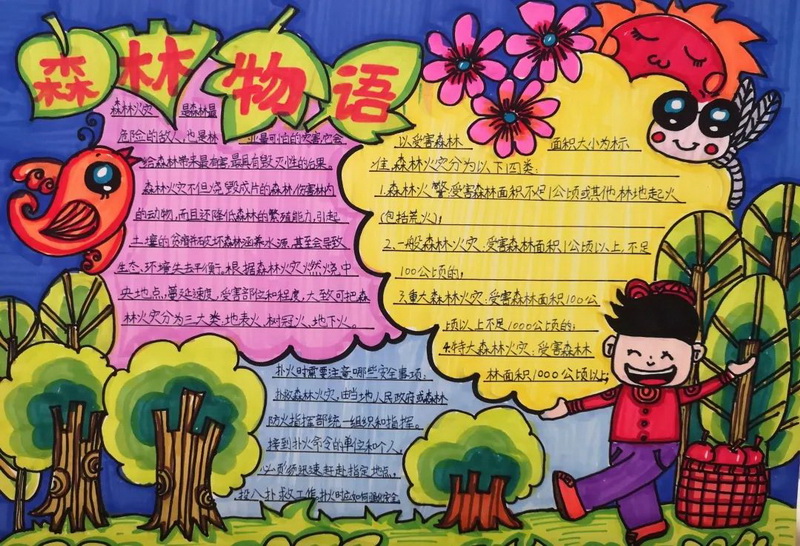 森林物语
森林火灾 是森林最
危险的敌人,也是林 业最可怕的灾害,它会
给森林带来最有害,最具有毁灭性的后果。
森林火灾不但烧毁成片的森林,伤害林内
的动物,而且还降低森林的繁殖能力,引起
土壤的贫瘠和破坏森林涵养水源,甚至会导致
生态环境失去平衡,根据森林火灾燃烧中
央地点,蔓延速度,受害部位和程度,大致可把森
林火灾分为三大类:地表火、树冠火、地下火。
以受害森林 面积大小为标
准,森林火灾分为以下四类:
1.森林火警:受害森林面积不足1公顷或其他林地起火
(包括荒火);
2.一般森林火灾、受害森林面积1公顷以上,不足
100公顷的;
3.重大森林火灾:受害森林面积100公
顷以上不足1000公顷的;
4.特大森林火灾:受害森林
林面积1000公顷以上;
扑火时需要注意哪些安全事项:
扑救森林火灾,由当地人民政府或森林
防火指挥部统一组织和指挥。
接到扑火命令的单位和个人,
必须须迅速赶赴指定地点,
投入扑救工作,扑火时应如何确保安全